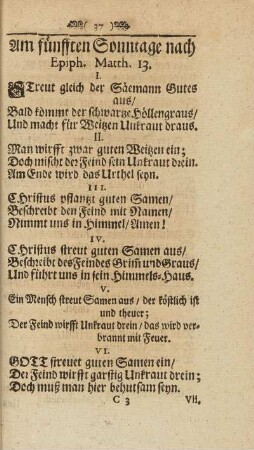 ( 37 )
Am fünfften Sonntage nach
Epiph. Matth. 13.
I.
STreut gleich der Säemann Gutes
aus/
Bald kömmt der schwartze Höllengraus/
Und macht für Weitzen Unkraut draus.
II.
Man wirfft zwar guten Weitzen ein;
Doch mischt der Feind sein Unkraut drein.
Am Ende wird das Urthel seyn.
III.
CHristus pflantzt guten Samen/
Beschreibt den Feind mit Namen/
Nimmt uns in Himmel/ Amen!
IV.
CHristus streut guten Samen aus/
Beschreibt des Feindes Grim̃ und Graus/
Und führt uns in sein Himmels-Haus.
V.
Ein Mensch streut Samen aus/ der köstlich ist
und theuer;
Der Feind wirfft Unkraut drein/ das wird ver-
brannt mit Feuer.
VI.
GOTT streuet guten Samen ein/
Der Feind wirfft garstig Unkraut drein;
Doch muß man hier behutsam seyn.
C 3
VII.